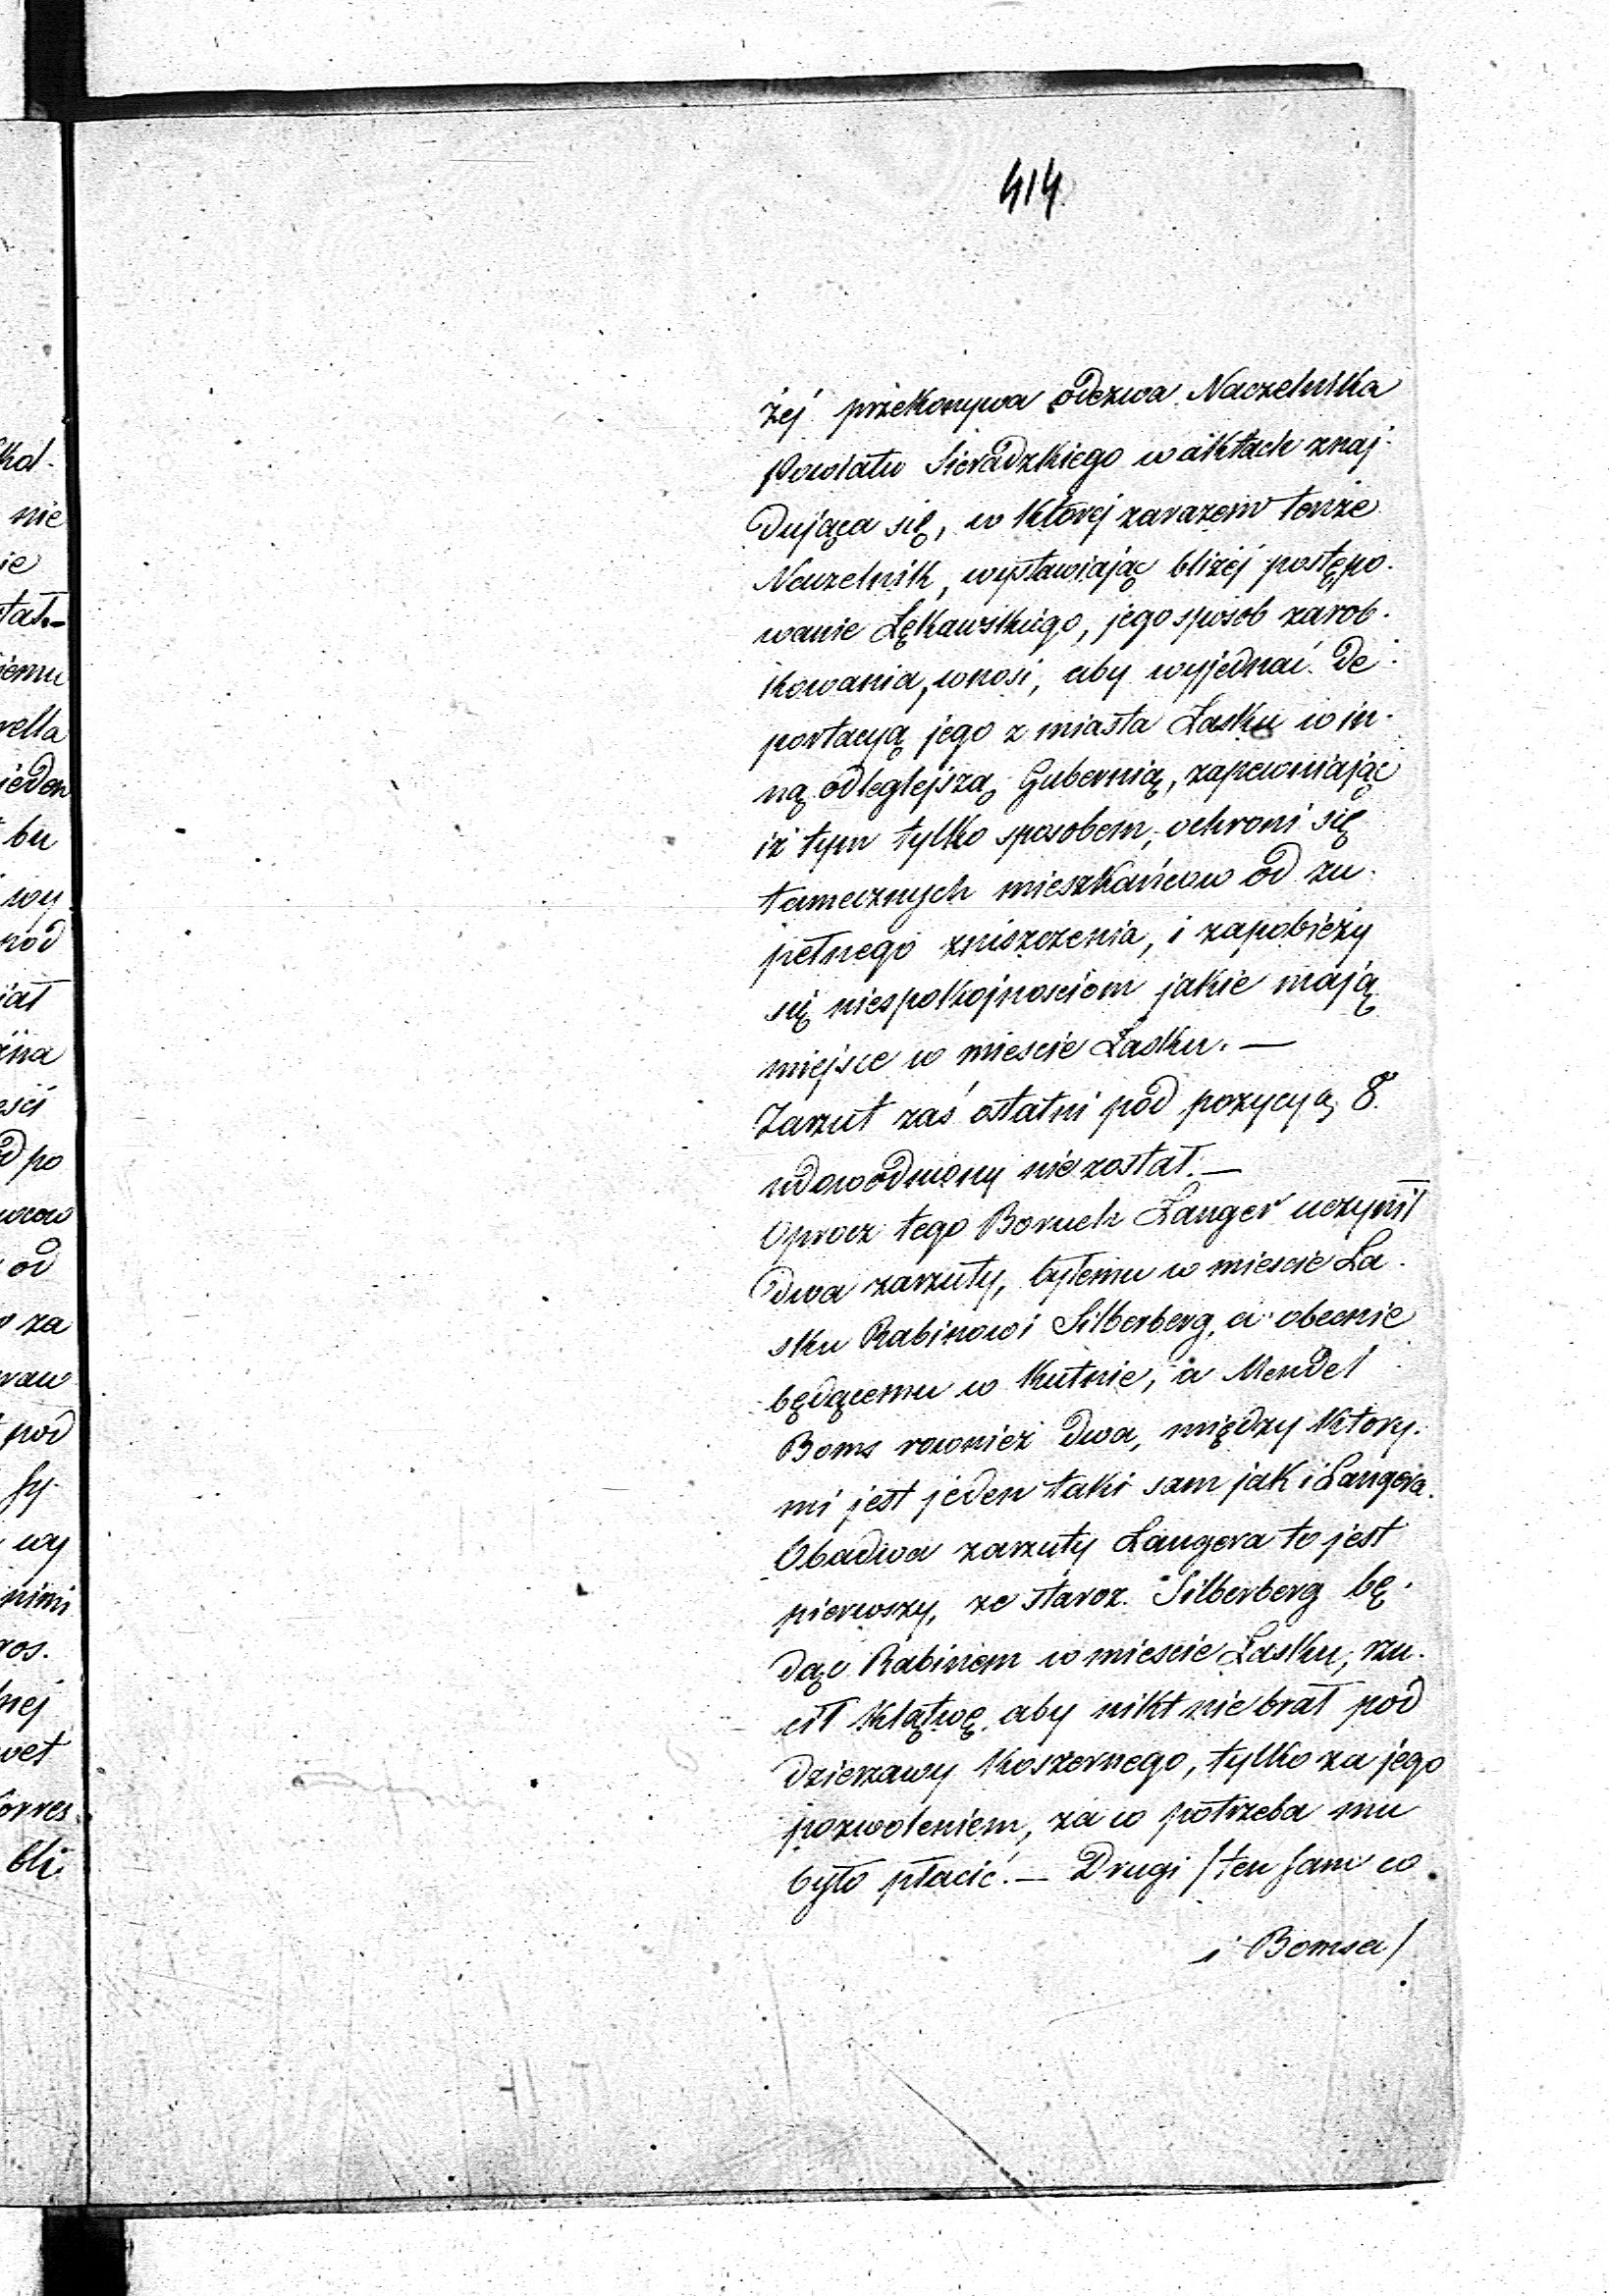 414
żej przekonywa odezwa Naczelnika
Powiatu Sieradzkiego w aktach znaj-
dująca się, w której zarazem tenże
Naczelnik, wystawiając bliżej postępo-
wanie Łękawskiego, jego sposób zarob-
kowania, wnosi, aby wyjednać de-
portacyą jego z miasta Łasku w in-
ną odleglejszą Gubernią, zapewniając
iż tym tylko sposobem, ochroni się
tamecznych mieszkańców od zu-
pełnego zniszczenia, i zapobieży
się niespokojnosciom jakie mają
miejsce w miescie Łasku. —
Zarzut zaś ostatni pod pozycyą 8.
udowodniony nie został. —
Oprocz tego Boruch Langer uczynił
dwa zarzuty, byłemu w miescie Ła-
sku Rabinowi Silberberg, a obecnie
będącemu w Kutnie, a Mendel
Boms rownież dwa, między który-
mi jest jeden taki sam jak i Langera.
Obadwa zarzuty Langera to jest
pierwszy, ze staroz. Silberberg bę-
dąc Rabinem w miescie Łasku, rzu-
cił klątwę, aby nikt nie brał pod
dzierzawy koszernego, tylko za jego
pozwoleniem, za co potrzeba mu
było płacić. — Drugi /ten sam co
i Bomsa/
kol-
nie
ie
tał.—
iemu
wella
ieden
bu
wy
pod
iał
żna
eści
d po
od
za
pod
sy-
wy
nimi
ros.
nej
wet
orres
bli